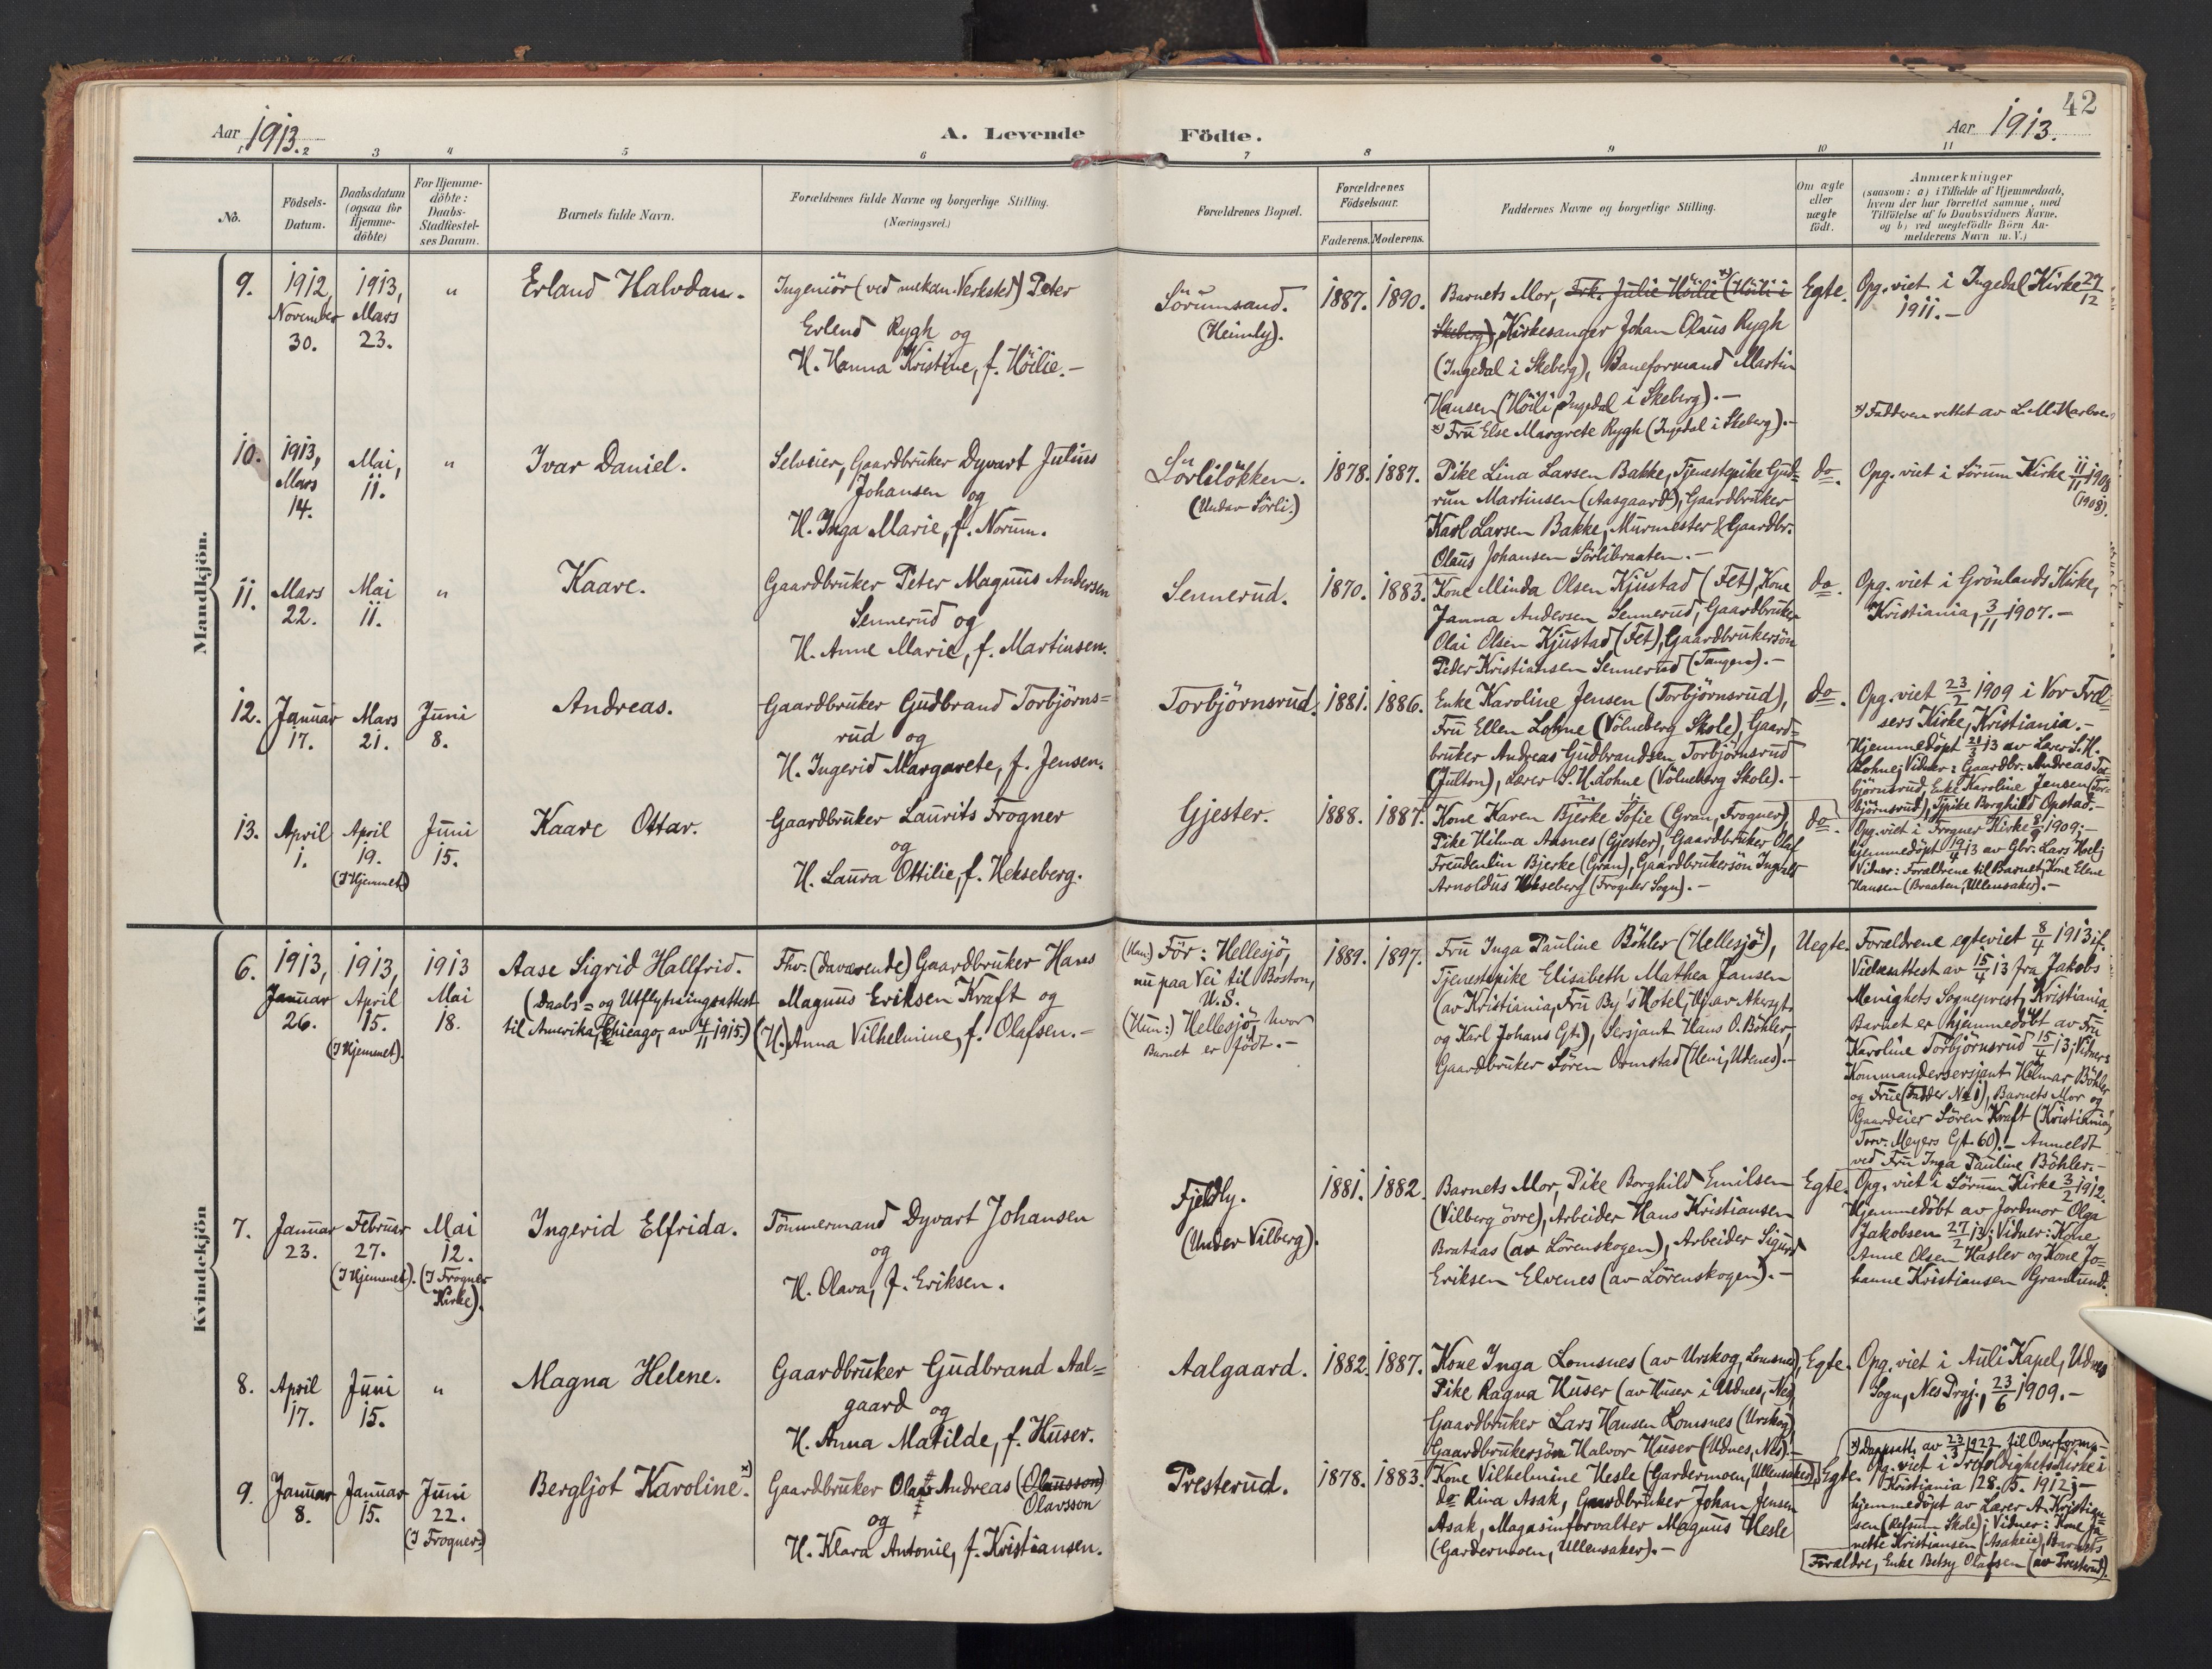 42
Aar 1913.
A. Levende Födte.
Aar 1913.
1 2 3 4 5 6 7 8 9 10 11
No.
Födsels-
Datum.
Daabsdatum
(ogsaa for
Hjemme-
döbte)
For Hjemme-
döbte:
Daabs-
Stadfæstel-
ses Datum.
Barnets fulde Navn.
Forældrenes fulde Navne og borgerlige Stilling.
(Næringsvei.)
Forældrenes Bopæl.
Forældrenes
Födselsaar.
Faderens. Moderens.
Faddernes Navne og borgerlige Stilling.
Om ægte
eller
uægte
födt.
Anmærkninger
(saasom: a) i Tilfælde af Hjemmedaab,
hvem der har forrettet samme, med
Tilföielse af to Daabsvidners Navne,
og b) ved uægtefödte Börn An-
melderens Navn m.V.)
Mandkjön.
9.
1912,
November
30.
1913,
Mars
23.
"
Erland Halvdan.
Ingeniör (ved mekan. Verksted) Peter
Erlend Rygh og
H. Hanna Kristine, f. Höilie.-
Sörumsand.
(Heimly).
1887. 1890.
Barnets Mor, Frk. Julie Höilie x) (Höili i
Skeberg), Kirkesanger Johan Olaus Rygh
(Ingedal i Skeberg), Baneformand Martin
Hansen (Höili, Ingedal i Skeberg).-
x) Fru Else Margrete Rygh (Ingedal i Skeberg).-
Egte.
Opg. viet i Ingedal Kirke 27/12
1911.-
x) Fadderen rettet av L. M.
10.
1913,
Mars
14.
Mai,
11.
"
Ivar Daniel.
Selveier, Gaardbruker Dyvart Julius
Johansen og
H. Inga Marie, f. Norum.
Sörlilökken.
(Under Sörli.)
1878. 1887.
Pike Lina Larsen Bakke, Tjenestepike Gud=
run Martinsen (Aasgaard), Gaardbruker
Karl Larsen Bakke, Murmester & Gaardbr.
Olaus Johansen Sörlibraaten.-
do.
Opg. viet i Sörum Kirke 11/11 1908
(1908).
11.
Mars
22.
Mai
11.
"
Kaare.
Gaardbruker Peter Magnus Andersen
Sennerud og
H. Anne Marie, f. Martinsen.
Sennerud.
1870. 1883.
Kone Minda Olsen Kjustad (Fet), Kone
Janna Andersen Sennerud, Gaardbruker
Olai Olsen Kjustad (Fet), Gaardbrukersön
Peder Kristiansen Sennerud (Tangen).-
do.
Opg. viet i Grönlands Kirke,
Kristiania, 3/11 1907.-
12.
Januar
17.
Mars
21.
Juni
8.
Andreas.
Gaardbruker Gudbrand Torbjörns=
rud og
H. Ingerid Margarete, f. Jensen.
Torbjörnsrud.
1881. 1886.
Enke Karoline Jensen (Torbjörnsrud),
Fru Ellen Lohne (Völneberg Skole), Gaard=
bruker Andreas Gudbrandsen Torbjörnsrud
(Julton), Lærer S. H. Lohne (Völneberg Skole).-
do.
Opg. viet 23/2 1909 i Vor Frel=
sers Kirke, Kristiania.-
Hjemmedöpt 21/3 13 av Lærer S. H.
Lohne; Vidner: Gaardbr. Andreas Tor=
björnsrud, Enke Karoline Jensen (Tor=
björnsrud), Tjpike Borghild Opstad.-
13.
April
1.
April
19.
(I Hjemmet)
Juni
15.
Kaare Ottar.
Gaardbruker Laurits Frogner
og
H. Laura Ottilie, f. Hekseberg.
Gjester.
1888. 1887.
Kone Karen Bjerke Sofie (Gran, Frogner),
Pike Hilma Aasnes (Gjester), Gaardbruker Olaf
Freudentin Bjerke (Gran), Gaardbrukersön Ingvald
Arnoldus Hekseberg (Frogner Sogn).-
do.
Opg. viet i Frogner Kirke 8/9 1909;-
hjemmedöpt 19/4 13 av Gbr. Lars
Vidner: Forældrene til Barnet, Kone Elene
Hansen (Braaten, Ullensaker).-
Kvindekjön
6.
1913,
Januar
26.
1913,
April
15.
(I Hjemmet).
1913
Mai
18.
Aase Sigrid Hallfrid.
(Daabs= og Utflytningsattest
til Amerika, Chicago, av 4/11 1915.)
Fhv. (daværende) Gaardbruker Hans
Magnus Eriksen Kraft og
(H.) Anna Vilhelmine, f. Olafsen.-
(Han) För: Hellesjö,
nu paa Vei til Boston,
U.S.
(Hun:) Hellesjö, hvor
Barnet er födt.-
1889. 1897.
Fru Inga Pauline Böhler (Hellesjö),
Tjenestepike Elisabeth Mathea Jansen
(av Kristiania, Fru By's Hotel, Hj. av Akersgt.
og Karl Johans Gt.), Sersjant Hans O. Böhler,
Gaardbruker Sören Ormstad (Heni, Udenes).-
Uegte.
Forældrene egteviet 8/4 1913 if.
Vielsesattest av 15/4 13 fra Jakobs
Menighets Sogneprest, Kristiania.
Barnet er hjemmedöbt av Fru
Karoline Torbjörnsrud 15/4 13; Vidner:
Kommandersersjant Hilmar Böhler
og Frue (Fadder No 1), Barnets Mor og
Gaardeier Sören Kraft (Kristiania,
Torv. Meyers Gt. 60).- Anmeldt
ved Fru Inga Pauline Böhler.-
7.
Januar
23.
Februar
27.
(I Hjemmet).
Mai
12.
(I Frogner
Kirke).
Ingerid Elfrida.
Tömmermand Dyvart Johansen
og
H. Olava, f. Eriksen.
Fjeldly.
(Under Vilberg).
1881. 1882.
Barnets Mor, Pike Borghild Emilsen
(Vilberg övre), Arbeider Hans Kristiansen
Brataas (av Lörenskogen), Arbeider Sigurd
Eriksen Elvenes (av Lörenskogen).-
Egte.
Opg. viet i Sörum Kirke 3/2 1912.
Hjemmedöbt av Jordmor Olga
Jakobsen 27/2 13; Vidner: Kone
Anne Olsen Hasler og Kone Jo=
hanne Kristiansen Granlund.
8.
April
17.
Juni
15.
"
Magna Helene.
Gaardbruker Gudbrand Aal=
gaard og
H. Anna Matilde, f. Huser.
Aalgaard.
1882. 1887.
Kone Inga Lomsnes (av Urskog, Lomsnes),
Pike Ragna Huser (av Huser i Udnes, Nes),
Gaardbruker Lars Hansen Lomsnes (Urskog),
Gaardbrukersön Halvor Huser (Udnes, Nes).-
Egte.
Opg. viet i Auli Kapel, Udnes
Sogn, Nes Prgj., 23/6 1909.-
9.
Januar
8.
Januar
15.
Juni
22.
(I Frogner)
Bergljot Karoline. x)
Gaardbruker Olaf Andreas (Olausson)
Olavsson
og
H. Klara Antonie, f. Kristiansen.
Presterud.
1878. 1883.
Kone Vilhelmine Hesle (Gardermoen, Ullensaker),
do Riva Asak, Gaardbruker Johan Jensen
Asak, Magasinforvalter Magnus Hesle
(Gardermoen, Ullensaker).-
Egte.
x) Daapsatt. av 23/3 1927 til Overform-
Opg. viet i Trefoldighetskirke i
Kristiania 28. 5. 1912;-
hjemmedöpt av Lærer A. Kristian=
sen (Refsum Skole); Vidner: Kone Ja=
nette Kristiansen (Asakeie), Barnets
Forældre, Enke Betsy Olafsen (av Presterud).